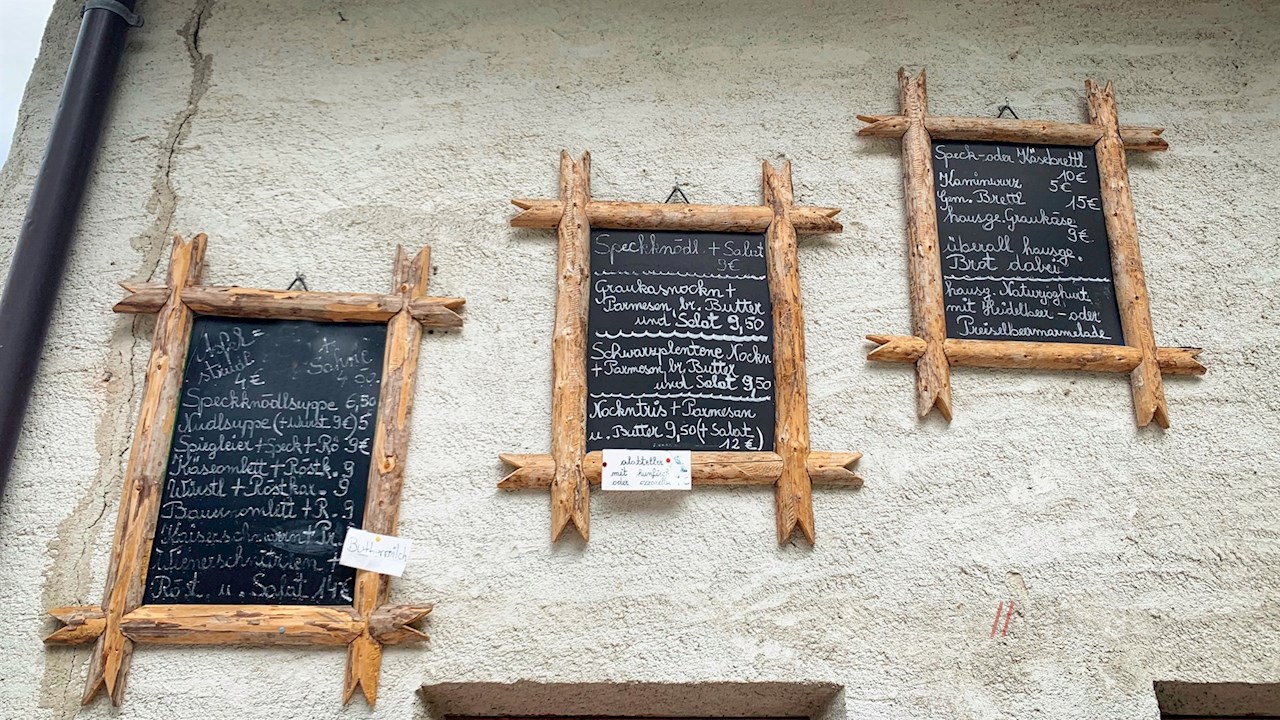 strudl
4€
+
Sahne
Speckknödlsuppe 6,50
Nudlsuppe (+Würst 9€) 5
Spiegleier + Speck + Rö 9€
Käseomlett + Röstk. 9
Würstl + Röstkar. 9
Bauernomlett + R. 9
Kaiserschmarrn + Pr.
Wienerschnitzien +
Röst. u. Salat 14€
Buttermilch
Speckknödl. + Salat
9€
Graukasnockn +
Parmesan, br. Butter
und Salat 9,50
Schwarzplentene Nockn
+ Parmesan, br. Butter
und Salat 9,50
Nockntris + Parmesan
u. Butter 9,50 (+ Salat
12€)
mit
oder
Speck-oder Käsebrettl
10€
Kaminwurz 5€
Gem. Brettl 15€
hausge. Graukäse
9€
überall hausge.
Brot dabei
hausg. Naturjoghurt
mit Heidelbeer-oder
Preiselbeermarmelade